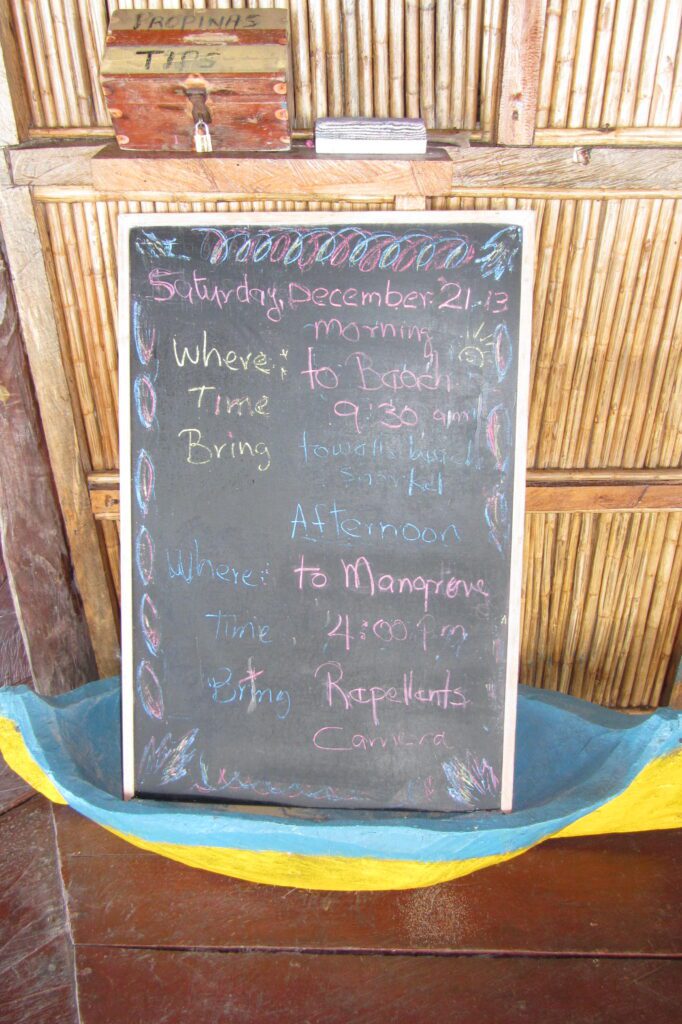 PROPINAS
TIPS
Saturday, December 21-13
morning
Where: to Baach
Time 9:30 am
Bring towalls
Snorkel
Afternoon
Where: to Mangrove
Time 4:00 pm
Bring Rapellants
Camera